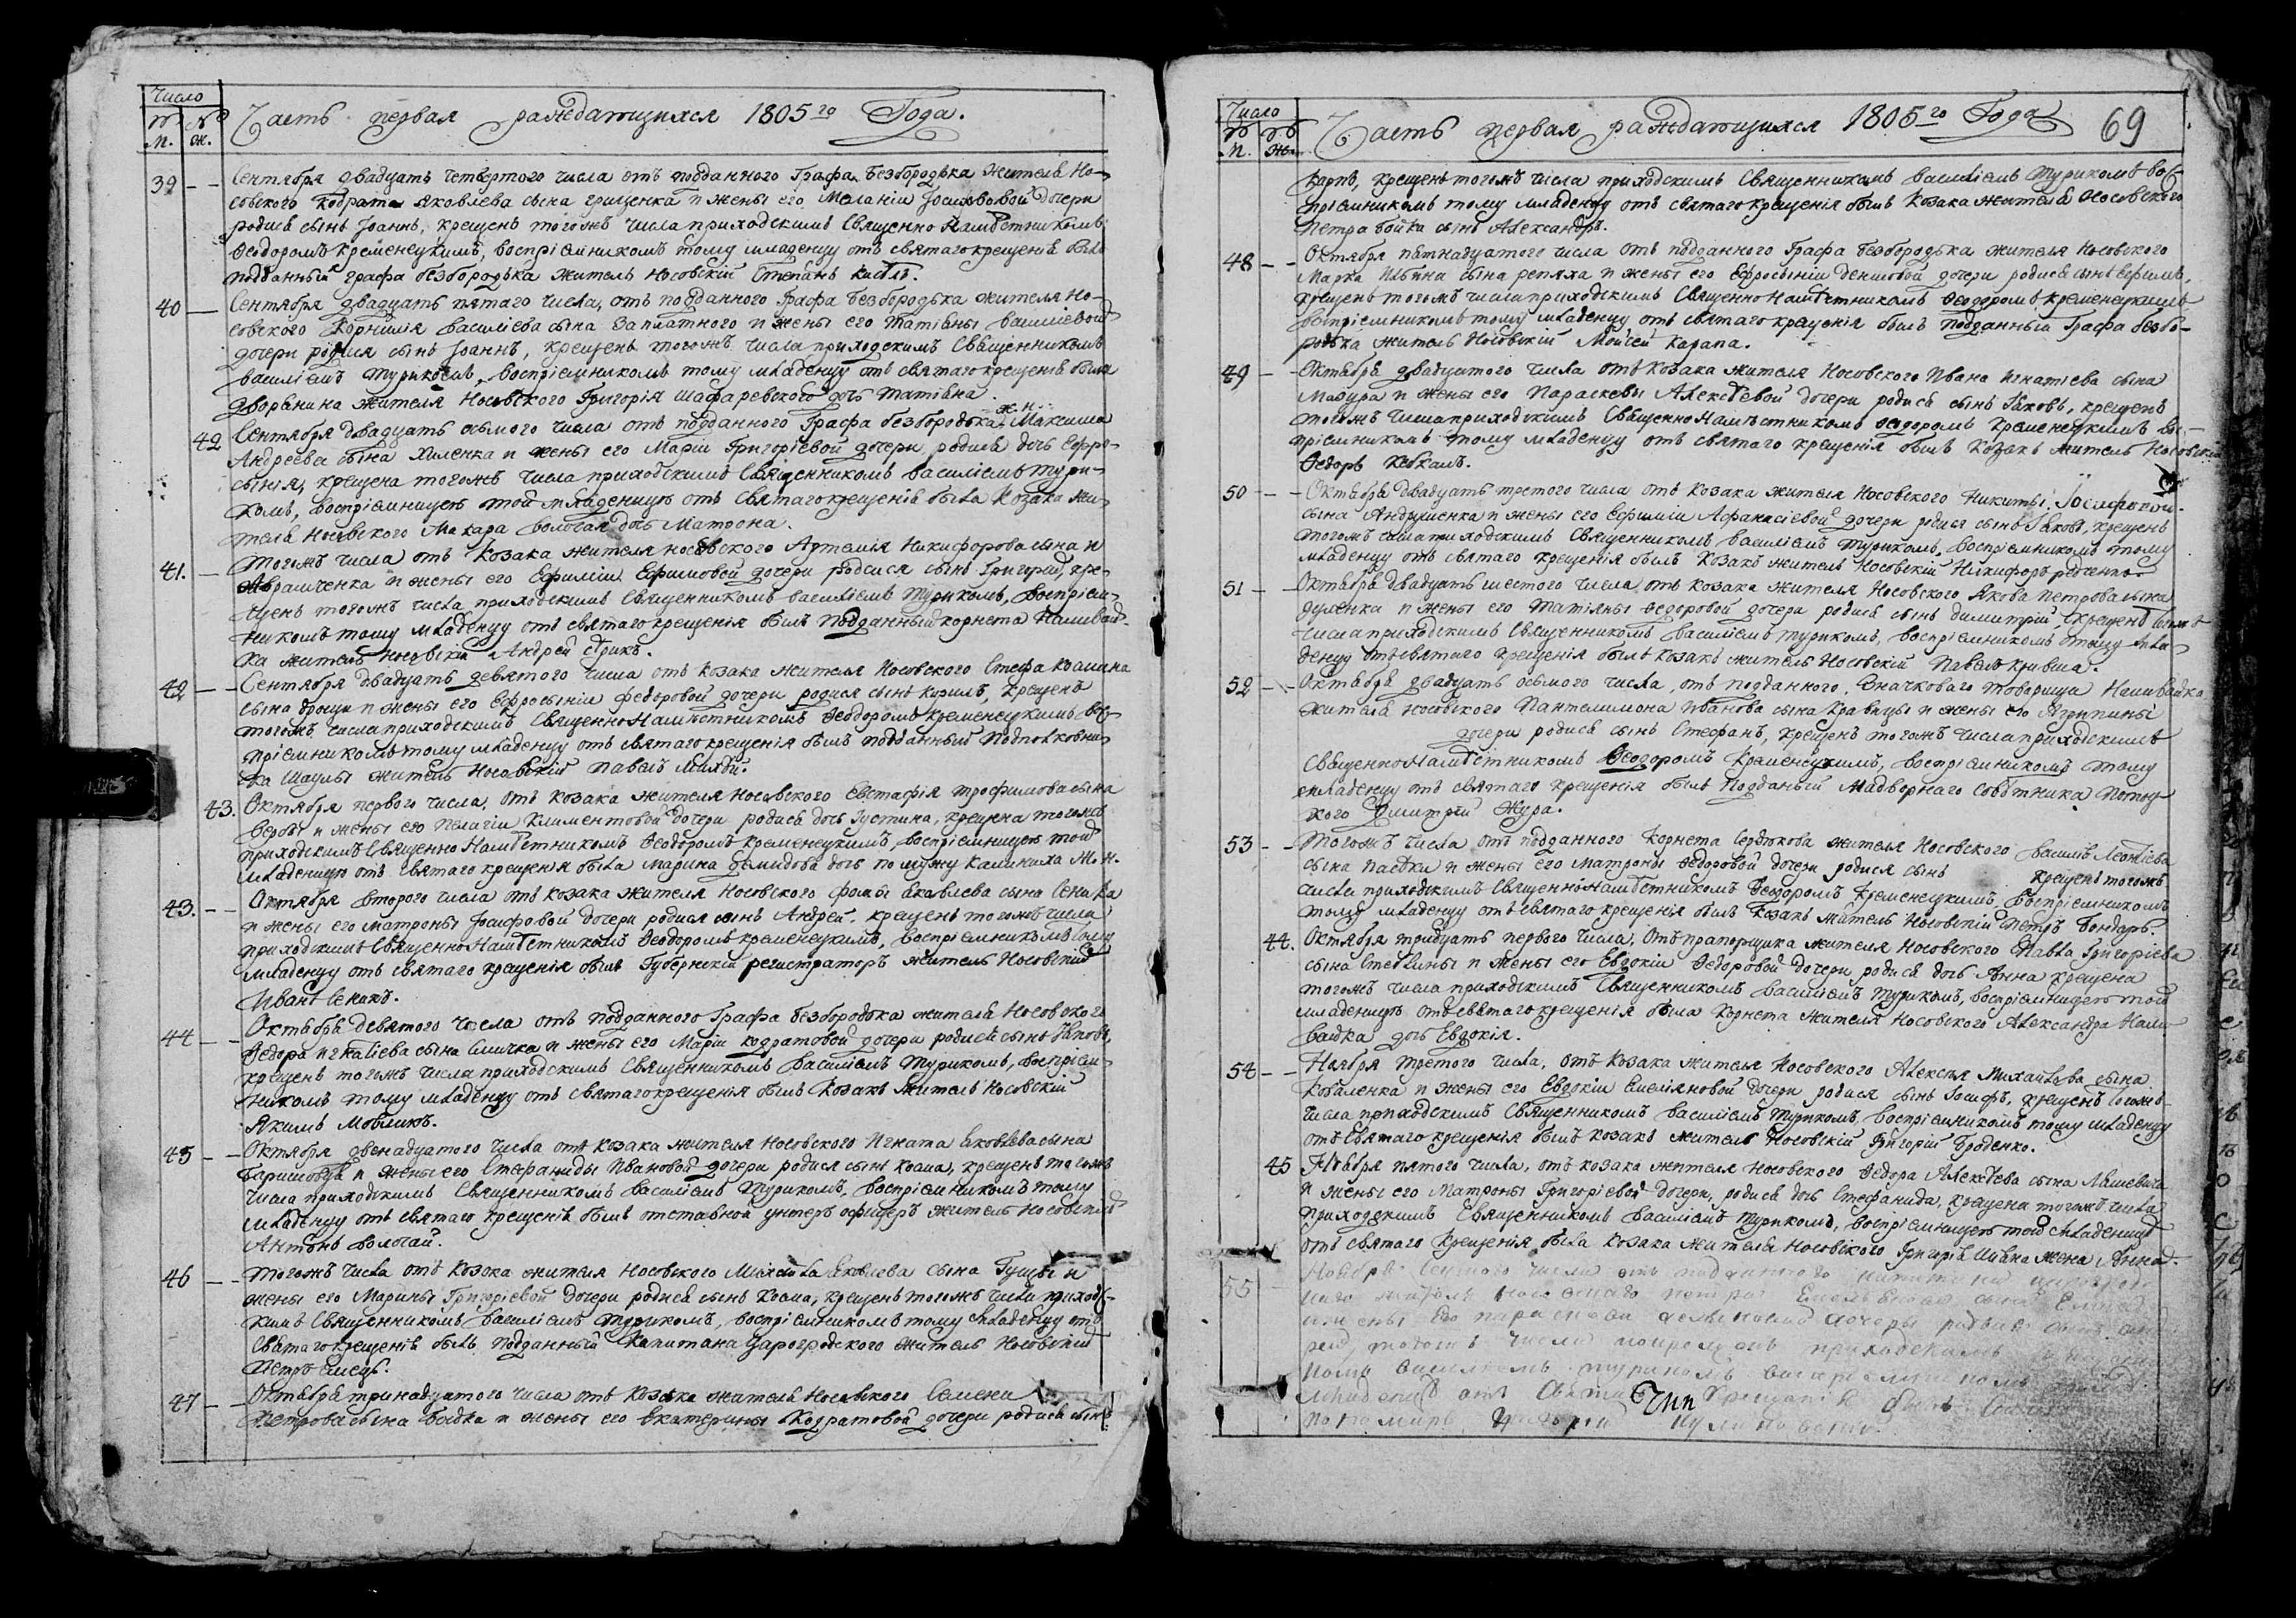 Число
№ №
м. ж.
Часть первая раждающихся 1805го Года.
39 Сентября двадцать четвертого числа отъ подданного Графа Безбородька жителя Но-
совского Кодрата Яковлева сына Грищенка и жены его Меланіи Іосифовой дочери
родися сынъ Іоаннъ, крещенъ тогожъ числа приходскимъ Священно Намѣстникомъ
Ѳеодоромъ Кременецкимъ, воспріемникомъ тому младенцу отъ святаго крещенія былъ
подданный графа безбородька житель Носовскій Степанъ
40 Сентября двадцать пятаго числа, отъ подданного Графа Безбородька жителя Но-
совского Корнилія Василіева сына Заплатного и жены его Татіаны Василіевой
дочери родися сынъ Іоаннъ, крещенъ тогожъ числа приходскимъ Священникомъ
Василіемъ Турикомъ, воспріемникомъ тому младенцу отъ святаго крещенія была
дворянина жителя Носовского Григорія Шафаревского дочь Татіана.
42 Сентября двадцать осмого числа отъ подданного Графа безбородька ж. н. Максима
Андреева сына Хиленка и жены его Маріи Григоріевой дочери родися дочь Ефро-
сынія, крещена тогожъ числа приходскимъ Священникомъ Василіемъ Тури-
комъ, воспріемницею той младеницы отъ Святаго крещенія была Козака жи-
теля Носовского Макара Волочая дочь Матрона.
41. Тогожъ числа отъ Козака жителя носовского Артемія Никифорова сына и
Авраменка и жены его Ефиміи Ефимовой дочери родися сынъ Григорій, кре-
щенъ тогожъ числа приходскимъ Священникомъ Василіемъ Турикомъ, воспріем-
никомъ тому младенцу отъ святаго крещенія былъ подданный корнета Наливай-
ка житель носовскій Андрей Стрикъ.
42 Сентября двадцать девятого числа отъ козака жителя Носовского Стефа Козмина
сына дрощи и жены его Ефросыніи Федоровой дочери родися сынъ Козма, крещенъ
тогожъ числа приходскимъ Священно Намѣстникомъ Ѳеодоромъ Кременецкимъ вос-
пріемникомъ тому младенцу отъ святаго крещенія былъ подданный Подполковни-
ка Шаулы житель Носовскій Павелъ
43. Октября первого числа, отъ козака жителя Носовского Евстафія Трофимова сына
и жены его Пелагіи Климентовой дочери родися дочь Іустина, крещена тогожъ
приходскимъ Священно Намѣстникомъ Ѳеодоромъ Кременецкимъ, воспріемницею той
младеницы отъ Святаго крещенія была Марина Демидова дочь по мужу Калиниха М. н.
43. Октября второго числа отъ козака жителя Носовского Фомы Яковлева сына Сенька
и жены его матроны Іосифовой дочери родися сынъ Андрей. крещенъ тогожъ числа
приходскимъ Священно Намѣстникомъ Ѳеодоромъ Кременецкимъ, воспріемникомъ тому
младенцу отъ святаго крещенія былъ Губернскій регистраторъ житель Носовскій
Иванъ Сенюкъ.
44 Октября девятого числа отъ подданного Графа безбородька жителя Носовского
Ѳедора Игнатіева сына Сличка и жены его Маріи Кодратовой дочери родися сынъ Іаковъ,
крещенъ тогожъ числа приходскимъ Священникомъ Василіемъ Турикомъ, воспріем-
никомъ тому младенцу отъ Святаго крещенія былъ Козакъ житель Носовскій
Якимъ
45 Октября двенадцатого числа отъ козака жителя Носовского Игната Яковлева сына
и жены его Стефаниды Ивановой дочери родися сынъ Косма, крещенъ тогожъ
числа приходскимъ Священникомъ Василіемъ Турикомъ, воспріемникомъ тому
младенцу отъ святаго крещенія былъ отставной унтеръ офицеръ житель носовскій
Антонъ Волочай.
46 Тогожъ числа отъ козака жителя Носовского Михаила Яковлева сына Гущи и
жены его Марины Григоріевой дочери родися сынъ Косма, крещенъ тогожъ числа приход-
кимъ Священникомъ Василіемъ Турикомъ, воспріемникомъ тому младенцу отъ
Святаго крещенія былъ подданный Капитана Царогродского житель Носовскій
Петръ
47 Октября тринадцатого числа отъ козака жителя Носовского Семена
Петрова сына Бойка и жены его Екатерины Кодратовой дочери родися сынъ
Число
№ №
м. ж.
Часть первая раждающихся 1805го Года
69
Карпъ, крещенъ тогожъ числа приходскимъ Священникомъ Василіемъ Турикомъ вос-
пріемникомъ тому младенцу отъ святаго крещенія былъ козака жителя Носовского
Петра Бойка сынъ Александръ.
48 Октября пятнадцатого числа отъ подданного Графа безбородька жителя Носовского
Марка Ильина сына репяха и жены его Ефросыніи Денисовой дочери родися сынъ Ефимъ,
крещенъ тогожъ числа приходскимъ Священно Намѣстникомъ Ѳеодоромъ Кременецкимъ
воспріемникомъ тому младенцу отъ святаго крещенія былъ подданный Графа безбо-
родька житель Носовскій Мойсей Карапа.
49 Октября двадцатого числа отъ козака жителя Носовского Ивана Игнатіева сына
Мацура и жены его Параскевы Алексѣевой дочери родися сынъ Іаковъ, крещенъ
тогожъ числа приходскимъ Священно Намѣстникомъ Ѳедоромъ Кременецкимъ вос-
пріемникомъ тому младенцу отъ святаго крещенія былъ козакъ житель Носовскій
Ѳедоръ
50 Октября двадцать третого числа отъ козака жителя Носовского Никиты Іосифова
сына Андрушенка и жены его Ефиміи Афанасіевой дочери родися сынъ Іаковъ, крещенъ
тогожъ числа приходскимъ Священникомъ Василіемъ Турикомъ. воспріемникомъ тому
младенцу отъ святаго крещенія былъ козакъ житель Носовскій Никифоръ редченко
51 Октября двадцать шестого числа отъ козака жителя Носовского Якова Петрова сына
дуденка и жены его Татіяны Ѳедоровой дочери родися сынъ Димитрій, крещенъ тогожъ
числа приходскимъ Священникомъ Василіемъ Турикомъ, воспріемникомъ тому мла-
денцу отъ святаго крещенія былъ козакъ житель Носовскій Павелъ Кривша.
52 Октября двадцать осьмого числа, отъ подданного Значковаго товарища Наливайка
жителя носовского Пантелимона Иванова сына Кравца и жены его Агрипины
дочери родися сынъ Стефанъ, крещенъ тогожъ числа приходскимъ
Священно Намѣстникомъ Ѳеодоромъ Кременецкимъ, воспріемникомъ тому
младенцу отъ святаго крещенія былъ подданый Надворнаго совѣтника Потоц-
кого Дмитрій Жура.
53 Тогожъ числа отъ подданного Корнета Сердюкова жителя Носовского Василія Леонтіева
сына Паѣтки и жены его матроны Ѳедоровой дочери родися сынъ крещенъ тогожъ
числа приходскимъ Священно Намѣстникомъ Ѳеодоромъ Кременецкимъ, воспріемникомъ
тому младенцу отъ святаго крещенія былъ козакъ житель Носовскій Петръ Бондарь.
44. Октября тридцать первого числа, отъ прапорщика жителя Носовского Павла Григоріева
сына Стеблины и жены его Евдокіи Ѳедоровой дочери, родися дочь Анна крещена
тогожъ числа приходскимъ Священникомъ Василіемъ Турикомъ, воспріемницею той
младеницы отъ святаго крещенія была Корнета жителя Носовского Александра Нали-
вайка дочь Евдокія.
54 Ноября третого числа, отъ козака жителя Носовского Алексѣя Михайлова сына
Коваленка и жены его Евдокіи Емеліяновой дочери родися сынъ Іосифъ, крещенъ тогожъ
числа приходскимъ Священникомъ Василіемъ Турикомъ, воспріемникомъ тому младенцу
отъ Святаго крещенія былъ козакъ житель Носовскій Григорій Броденко.
45 Ноября пятого числа, отъ козака жителя Носовского Ѳедора Алексѣева сына Ляшевича
и жены его Матроны Григоріевой дочери, родися дочь Стефанида, крещена тогожъ числа
приходскимъ Священникомъ Василіемъ Турикомъ, воспріемницею той младеницы
отъ святаго крещенія была козака жителя Носовского Григорія Шивка жена Анна.
55 Ноября числа отъ подданного
Петра
дочери
числа приходскимъ
Василіемъ Турикомъ
младенцу отъ Свята Чип крещенія былъ